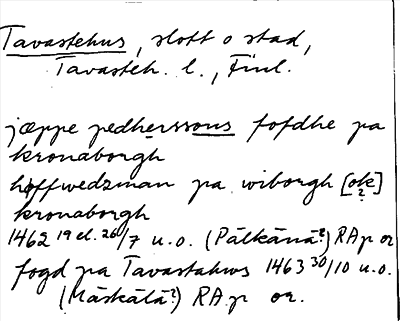 Tavastehus, slott o stad,
Tavasteh. l., Finl.
jæppe pedherssons fofdhe pa
kronaborgh
höffwedzman pa wiborgh [ok]
?
kronaborgh
1462 19 el. 26/7 u.o. (Pälkänä?) RAp or
fogd pa Tavastahws 1463 30/10 u.o.
(Mäskälä?) RAp or.